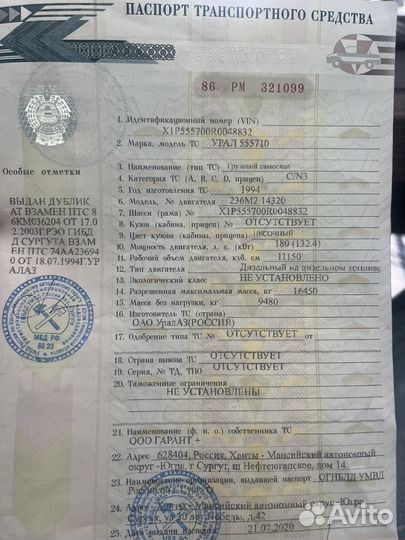 ПАСПОРТ ТРАНСПОРТНОГО СРЕДСТВА
86 РМ 321099
1. Идентификационный номер (VIN)
X1P555700R0048832
2. Марка, модель ТС УРАЛ 555710
3. Наименование (тип ТС) Грузовой самосвал
4. Категория ТС (A, B, C, D, прицеп) C/N3
5. Год изготовления ТС 1994
6. Модель, № двигателя 236М2 14320
7. Шасси (рама) № X1P555700R0048832
8. Кузов (кабина, прицеп) № ОТСУТСТВУЕТ
9. Цвет кузова (кабины, прицепа) песочный
10. Мощность двигателя, л. с. (кВт) 180 (132.4)
11. Рабочий объем двигателя, куб. см 11150
12. Тип двигателя Дизельный на дизельном топливе
13. Экологический класс НЕ УСТАНОВЛЕНО
14. Разрешенная максимальная масса, кг 16450
15. Масса без нагрузки, кг 9480
16. Изготовитель ТС (страна)
ОАО УралАЗ(РОССИЯ)
17. Одобрение типа ТС № ОТСУТСТВУЕТ
от
18. Страна вывоза ТС ОТСУТСТВУЕТ
19. Серия, № ТД, ТПО ОТСУТСТВУЕТ
20. Таможенные ограничения
НЕ УСТАНОВЛЕНЫ
21. Наименование (ф. и. о.) собственника ТС
ООО ГАРАНТ +
22. Адрес 628404, Россия, Ханты - Мансийский автономный
округ -Югра, г Сургут, ш Нефтеюганское, дом 14
23. Наименование организации, выдавшей паспорт ОГИБДД УМВД
России по г
24. Адрес Ханты - Мансийский автономный округ -Югра,
Победы, д.42
25. Дата выдачи паспорта 21.07.2020
Особые отметки
ВЫДАН ДУБЛИК
АТ ВЗАМЕН ПТС 8
6КМ036204 ОТ 17.0
2.2003Г.РЭО ГИБД
Д СУРГУТА ВЗАМ
ЕН ПТС 74АА23694
0 ОТ 18.07.1994Г.УР
АЛАЗ
МВД РФ
86 23
Avito